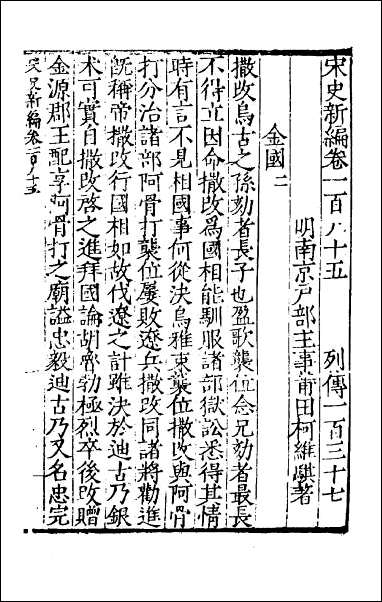 宋史新編卷一百八十五　列傳一百三十七
明南京戸部主事莆田柯維騏著
金國二
撒改烏古之孫劾者長子也盈歌襲位念兄劾者最長
不得立因命撒改爲國相能馴服諸部獄訟悉得其情
時有言不見相國事何從決烏雅束襲位撒改與阿骨
打分治諸部阿骨打襲位屢敗遼兵撒改同諸將勸進
旣稱帝撒改行國相如故伐遼之計雖決於迪古乃銀
术可實自撒改啓之進拜國論胡魯勃極烈卒後改贈
金源郡王配享阿骨打之廟謚忠毅迪古乃又名忠完
宋史新編卷一百八十五